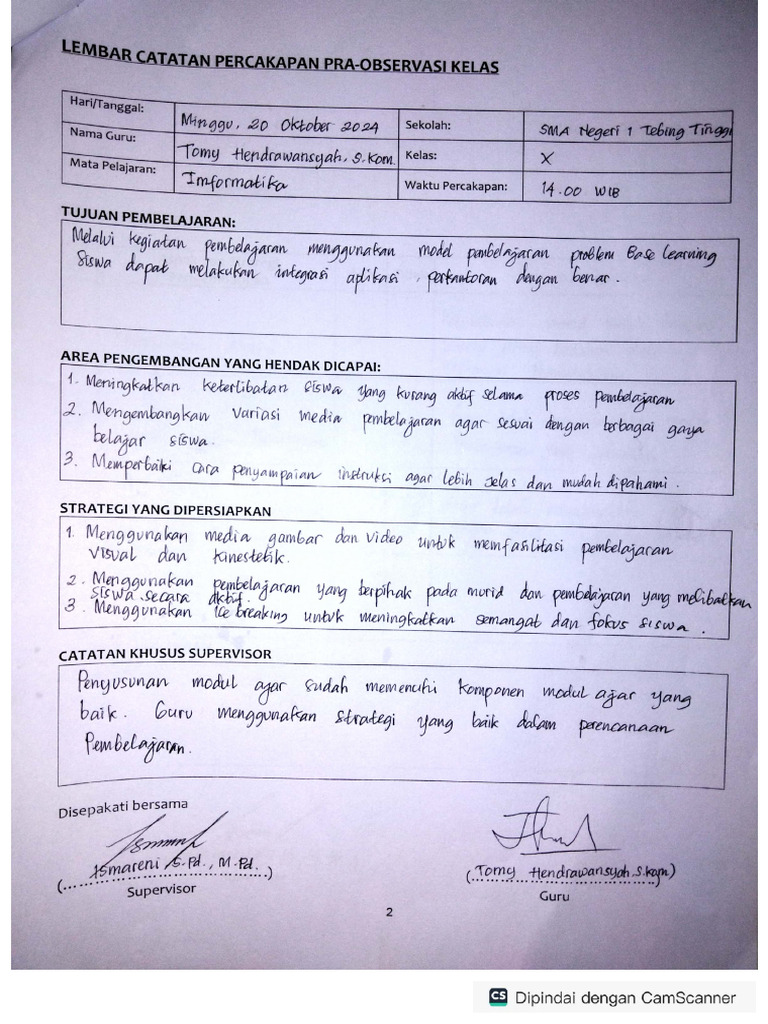 LEMBAR CATATAN PERCAKAPAN PRA-OBSERVASI KELAS
Hari/Tanggal: Minggu, 20 Oktober 2024 Sekolah: SMA Negeri 1 Tebing Tinggi
Nama Guru: Tomy Hendrawansyah, S.Kom. Kelas: X
Mata Pelajaran: Informatika Waktu Percakapan: 14.00 WIB
TUJUAN PEMBELAJARAN:
Melalui kegiatan pembelajaran menggunakan model pembelajaran problem Base Learning
Siswa dapat melakukan integrasi aplikasi perkantoran dengan benar.
AREA PENGEMBANGAN YANG HENDAK DICAPAI:
1. Meningkatkan keterlibatan siswa yang kurang aktif selama proses pembelajaran
2. Mengembangkan variasi media pembelajaran agar sesuai dengan berbagai gaya
belajar siswa.
3. Memperbaiki cara penyampaian instruksi agar lebih jelas dan mudah dipahami.
STRATEGI YANG DIPERSIAPKAN
1. Menggunakan media gambar dan video untuk memfasilitasi pembelajaran
visual dan kinestetik.
2. Menggunakan pembelajaran yang berpihak pada murid dan pembelajaran yang melibatkan
siswa secara aktif.
3. Menggunakan ice breaking untuk meningkatkan semangat dan fokus siswa.
CATATAN KHUSUS SUPERVISOR
Penyusunan modul ajar sudah memenuhi komponen modul ajar yang
baik. Guru menggunakan strategi yang baik dalam perencanaan
Pembelajaran.
Disepakati bersama
(Ismareni S.Pd., M.Pd.) (Tomy Hendrawansyah, S.Kom)
Supervisor Guru
2
CS Dipindai dengan CamScanner